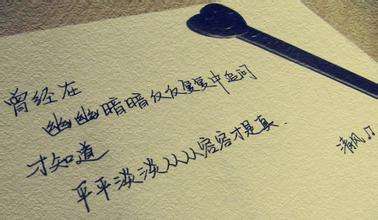 曾经在
幽幽暗暗反反复复中追问
才知道
平平淡淡从从容容才是真.
清风.♫